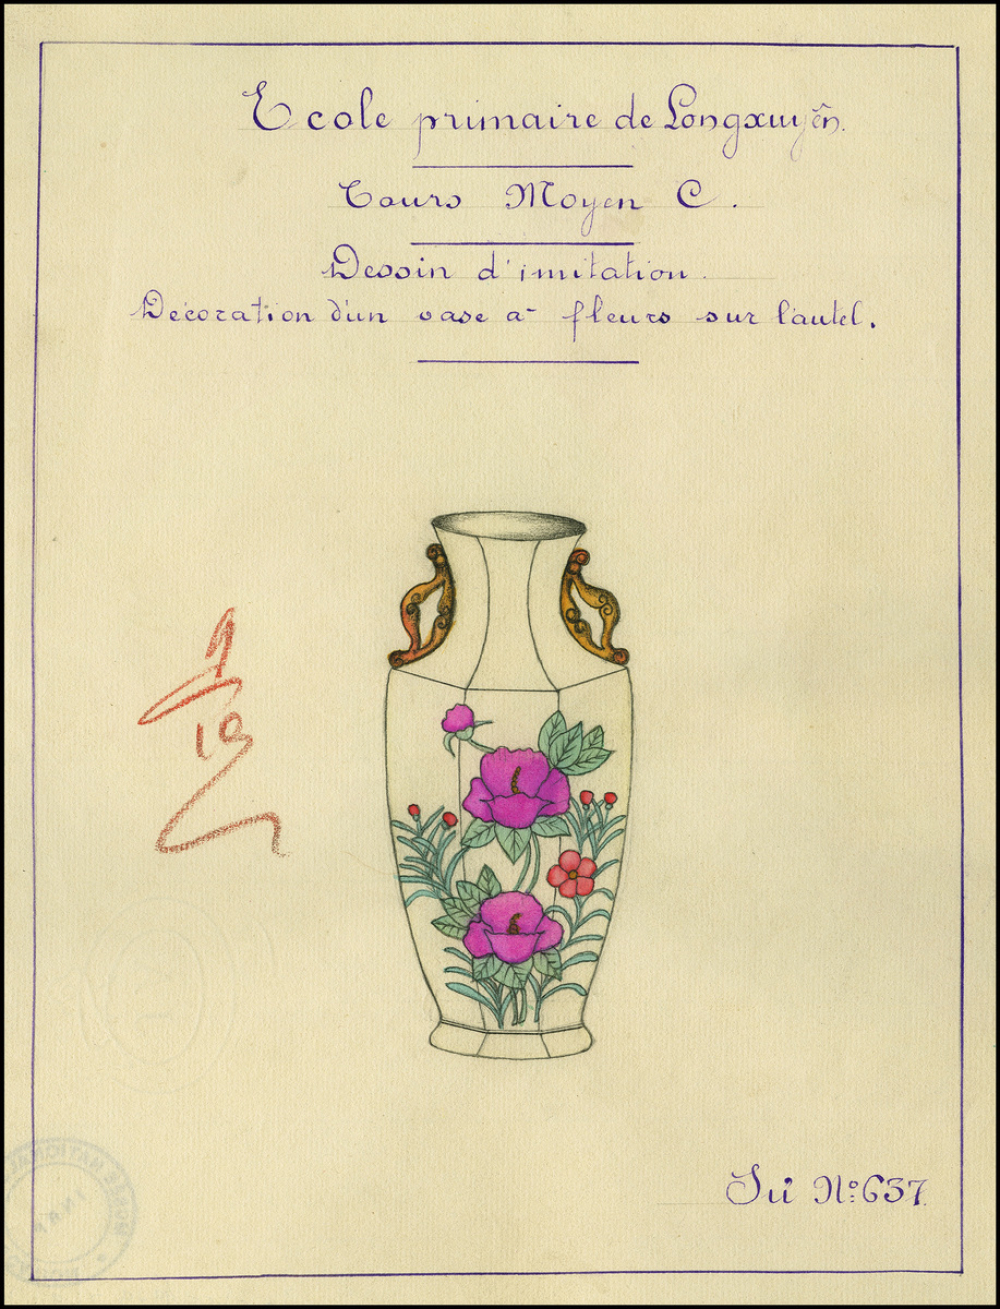 Ecole primaire de Longxuyên.
Cours Moyen C.
Dessin d'imitation.
Décoration d'un vase à fleurs sur l'autel.
10
Nº 637